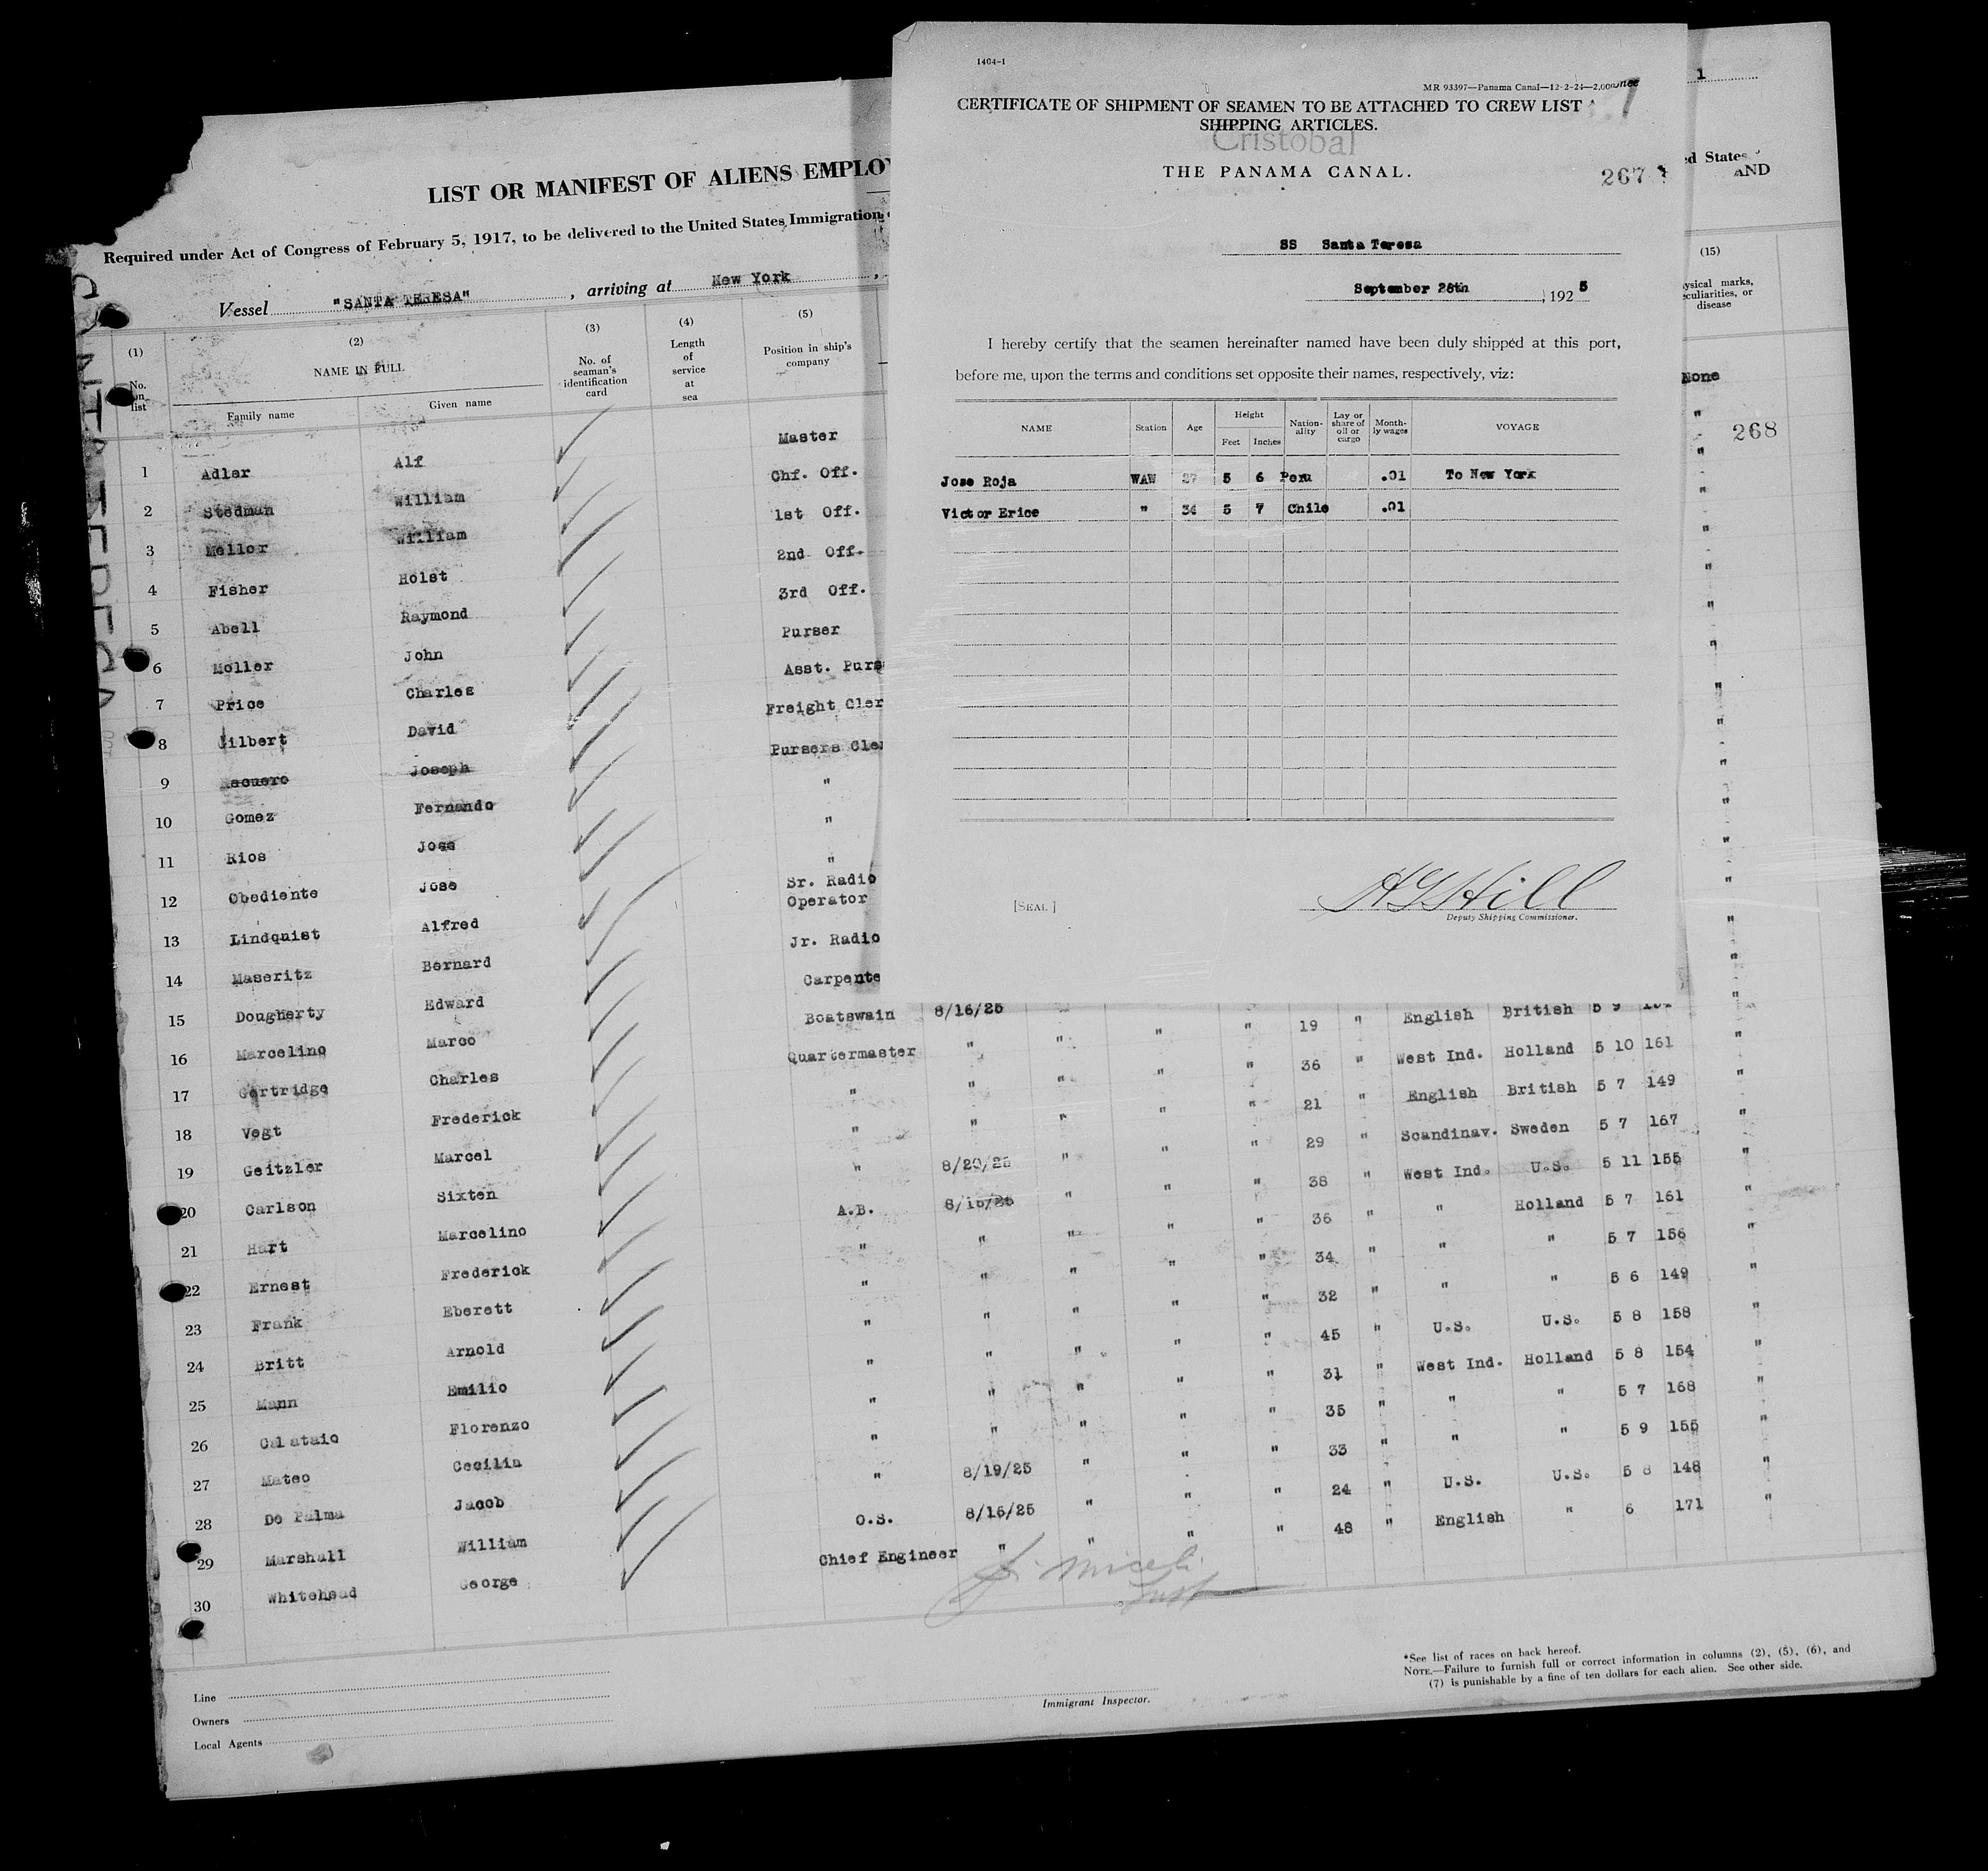 1404-1
MR 93397—Panama Canal—12-2-24—2,000
CERTIFICATE OF SHIPMENT OF SEAMEN TO BE ATTACHED TO CREW LIST
SHIPPING ARTICLES.
Cristobal
THE PANAMA CANAL.
267
SS Santa Teresa
September 28th, 1925
I hereby certify that the seamen hereinafter named have been duly shipped at this port,
before me, upon the terms and conditions set opposite their names, respectively, viz:
NAME Station Age Height Feet Inches Nationality Lay or share of oil or cargo Monthly wages VOYAGE
Jose Roja WAW 27 5 6 Peru .01 To New York
Victor Erice " 34 5 7 Chile .01
[SEAL]
A G Hill
Deputy Shipping Commissioner.
1
ed States
AND
LIST OR MANIFEST OF ALIENS EMPLO
Required under Act of Congress of February 5, 1917, to be delivered to the United States Immigration
Vessel "SANTA TERESA", arriving at New York,
SANTA TERESA
(1) No. on list (2) NAME IN FULL Family name Given name (3) No. of seaman's identification card (4) Length of service at sea (5) Position in ship's company (15) ysical marks, eculiarities, or disease
268
1 Adler Alf Master None
2 Stedman William Chf. Off. "
3 Mellor William 1st Off. "
4 Fisher Holst 2nd Off. "
5 Abell Raymond 3rd Off. "
6 Moller John Purser "
7 Price Charles Asst. Purs "
8 Gilbert David Freight Cler "
9 Macuero Joseph Pursers Cle "
10 Gomez Fernando " "
11 Rios Jose " "
12 Obediente Jose " "
13 Lindquist Alfred Sr. Radio Operator "
14 Maseritz Bernard Jr. Radio "
15 Dougherty Edward Carpente "
16 Marcelino Marco Boatswain 8/16/25 "
17 Gertridge Charles Quartermaster " " " " 19 " English British 5 9 "
18 Vegt Frederick " " " " " 36 " West Ind. Holland 5 10 161 "
19 Geitzler Marcel " " " " " 21 " English British 5 7 149 "
20 Carlson Sixten " 8/20/25 " " " 29 " Scandinav. Sweden 5 7 167 "
21 Hart Marcelino A.B. 8/16/25 " " " 38 " West Ind. U.S. 5 11 155 "
22 Ernest Frederick " " " " " 36 " " Holland 5 7 161 "
23 Frank Eberett " " " " " 34 " " " 5 7 156 "
24 Britt Arnold " " " " " 32 " " " 5 6 149 "
25 Mann Emilio " " " " " 45 " U.S. U.S. 5 8 158 "
26 Calataio Florenzo " " " " " 31 " West Ind. Holland 5 8 154 "
27 Mateo Cecilia " " " " " 35 " " " 5 7 168 "
28 De Palma Jacob " 8/19/25 " " " 33 " " " 5 9 155 "
29 Marshall William O.S. 8/16/25 " " " 24 " U.S. U.S. 5 8 148 "
30 Whitehead George Chief Engineer " " " " 48 " English " 6 171 "
Line
Owners
Local Agents
Immigrant Inspector.
*See list of races on back hereof.
NOTE.—Failure to furnish full or correct information in columns (2), (5), (6), and
(7) is punishable by a fine of ten dollars for each alien. See other side.